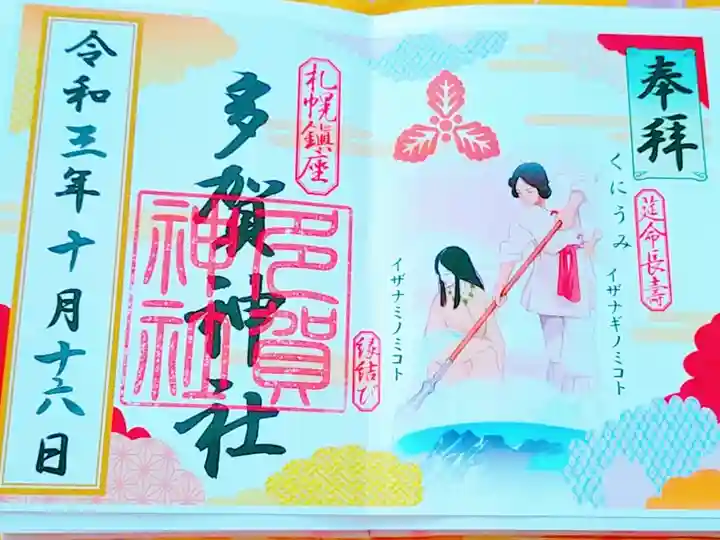 奉拝
延命長壽
くにうみ
イザナギノミコト
イザナミノミコト
札幌鎮座
縁結び
多賀神社
多賀
神社
令和三年十月十六日